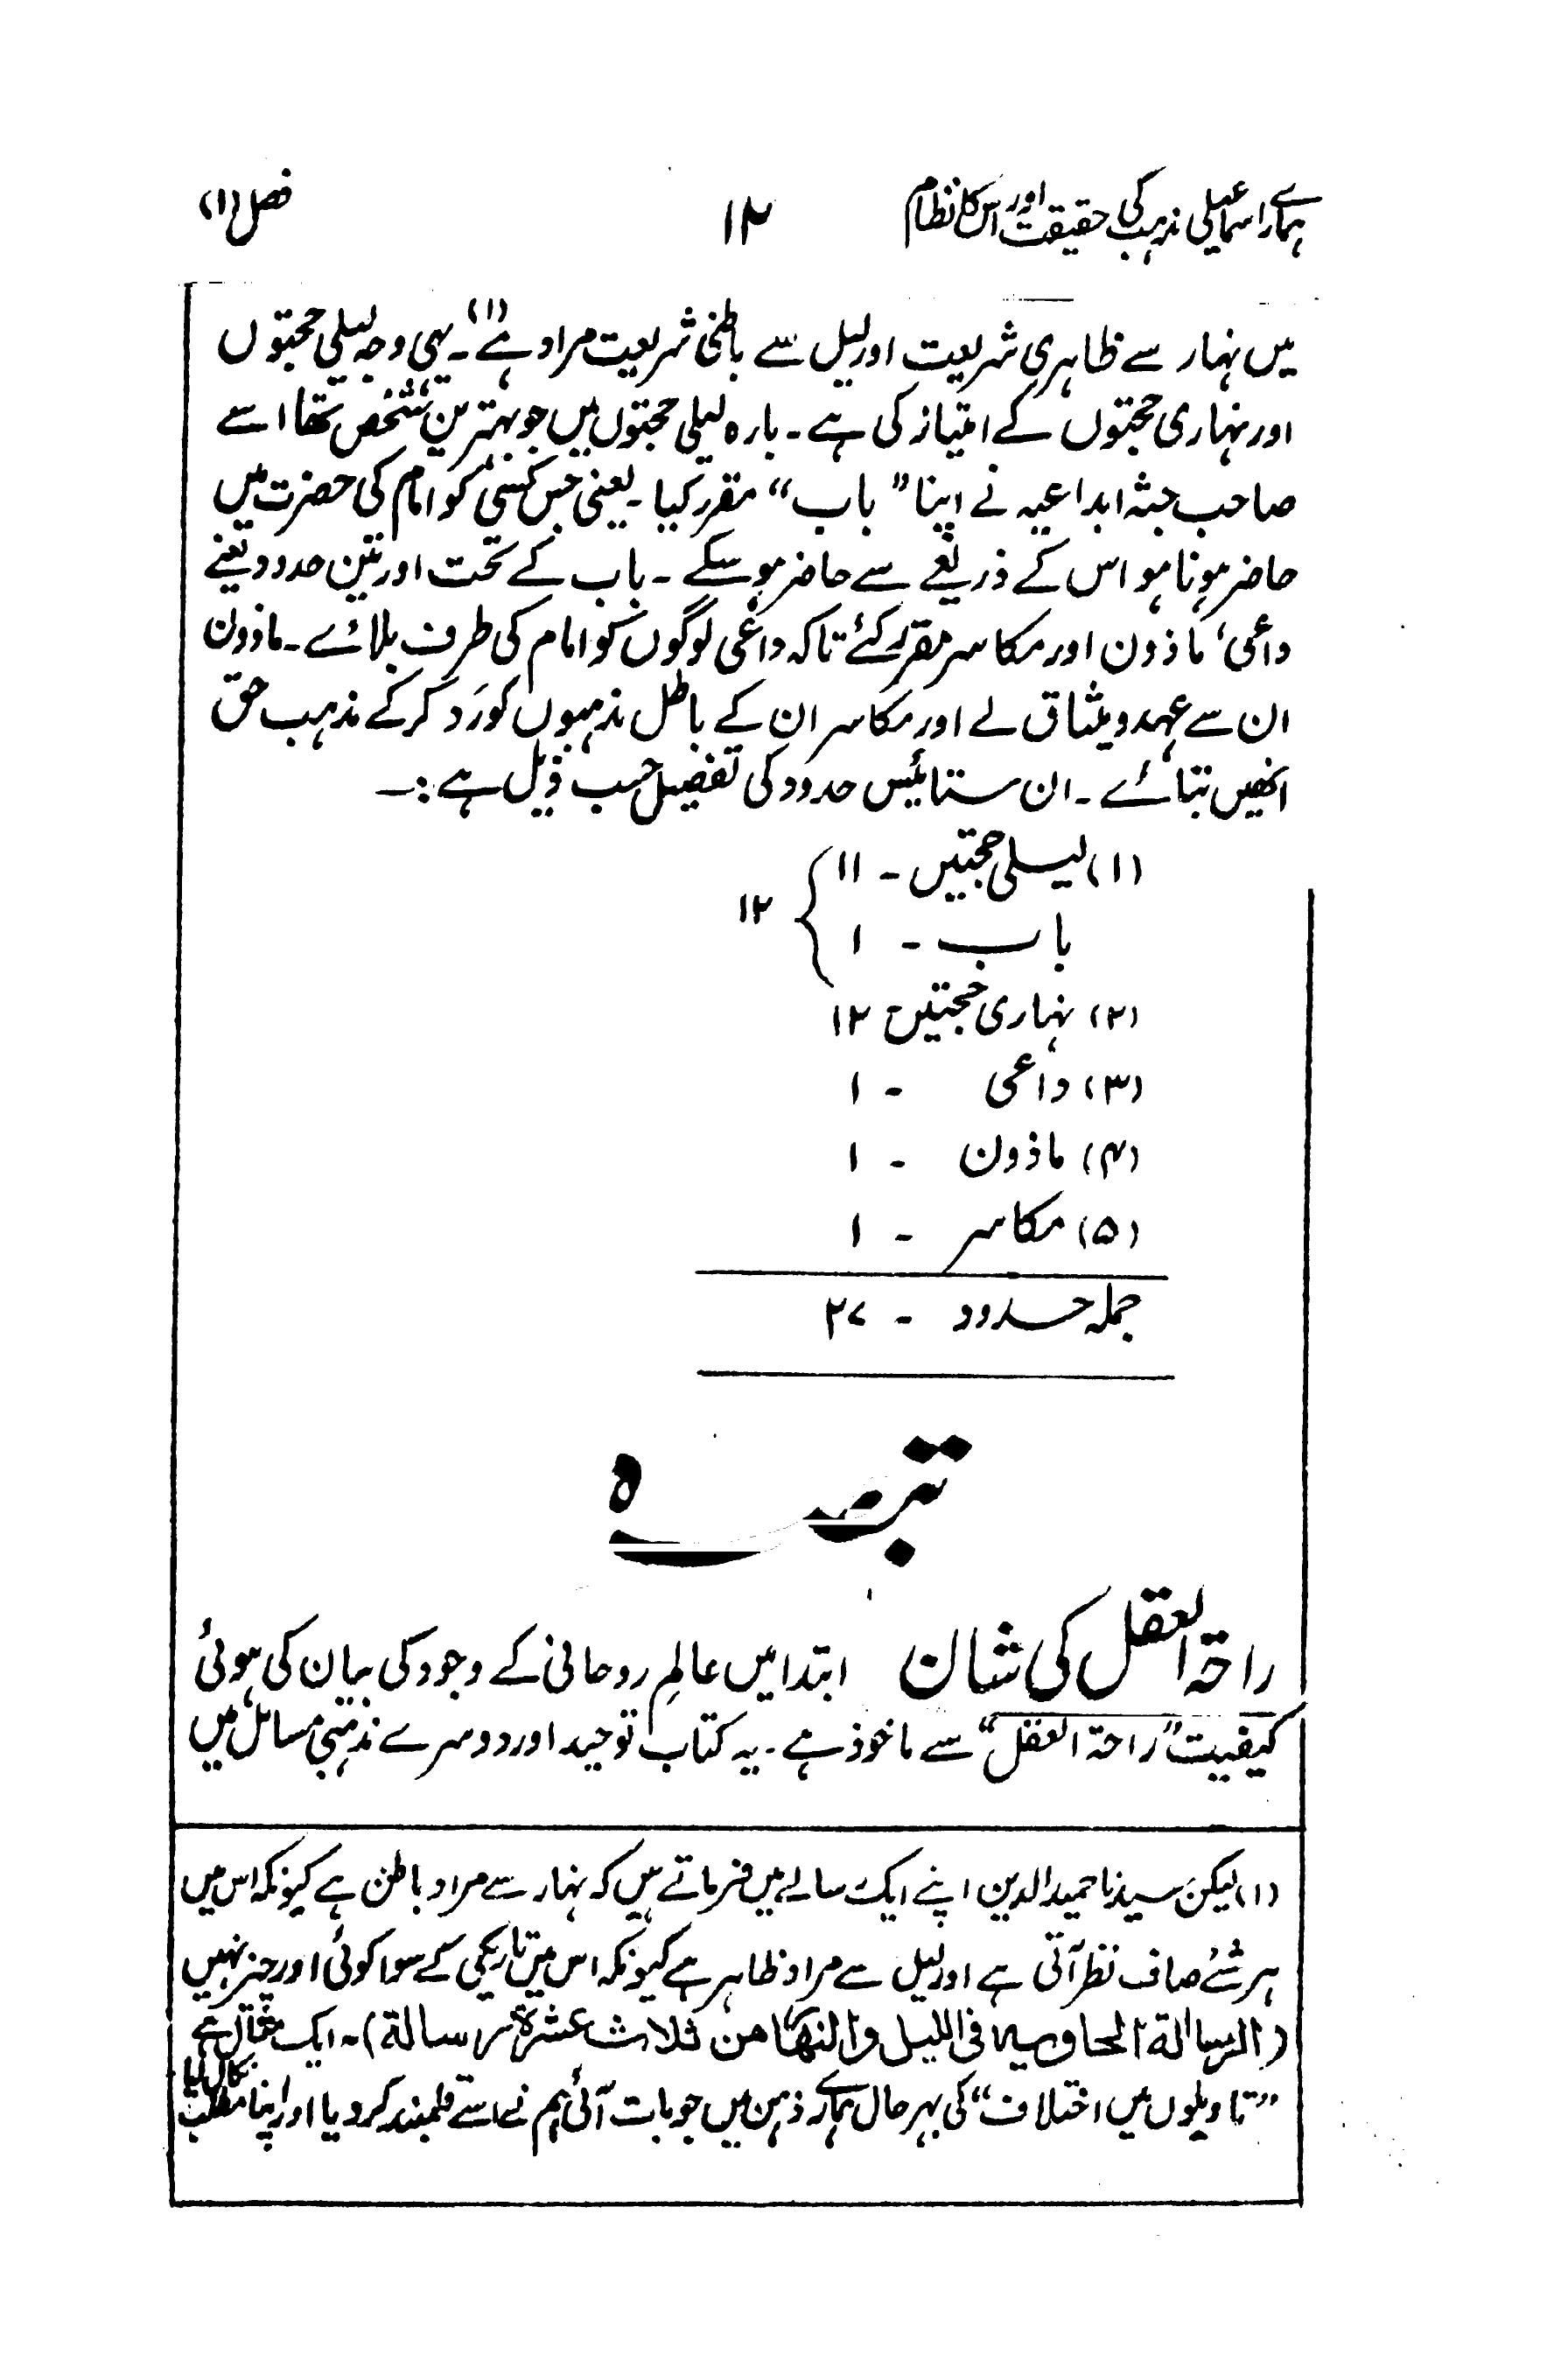 ہمارے اسماعیلی مذہب کی حقیقت اور اس کا نظام ۱۲ فصل (۱)
میں نہار سے ظاہری شریعت اور لیل سے باطنی شریعت مراد ہے (۱)۔ یہی وجہ لیلی حجتوں
اور نہاری حجتوں کے امتیاز کی ہے۔ بارہ لیلی حجتوں میں جو بہترین شخص تھا اسے
صاحب جثہ ابداعیہ نے اپنا ”باب“ مقرر کیا۔ یعنی جس کسی کو امام کی حضرت میں
حاضر ہونا ہو اس کے ذریعے سے حاضر ہو سکے۔ باب کے تحت اور تین حدود یعنے
داعی، ماذون اور مکاسر مقرر کئے تاکہ داعی لوگوں کو امام کی طرف بلائے۔ ماذون
ان سے عہد و میثاق لے اور مکاسر ان کے باطل مذہبوں کو رَد کر کے مذہب حق
انھیں بتائے۔ ان ستائیس حدود کی تفصیل حسب ذیل ہے:۔
(۱) لیلی حجتیں - ۱۱
باب - ۱ } ۱۲
(۲) نہاری حجتیں ۱۲
(۳) داعی - ۱
(۴) ماذون - ۱
(۵) مکاسر - ۱
جملہ حدود - ۲۷
تبصرہ
راحۃ العقل کی شان ابتدا میں عالمِ روحانی کے وجود کی بیان کی ہوئی
کیفیت ”راحۃ العقل“ سے ماخوذ ہے۔ یہ کتاب توحید اور دوسرے مذہبی مسائل میں
(۱) لیکن سیدنا حمید الدین اپنے ایک رسالے میں فرماتے ہیں کہ نہار سے مراد باطن ہے کیونکہ اس میں
ہر شئے صاف نظر آتی ہے اور لیل سے مراد ظاہر ہے کیونکہ اس میں تاریکی کے سوا کوئی اور چیز نہیں
(الرسالة الحاویہ فی اللیل والنھار من ثلاث عشرة رسالة)۔ ایک مثال ہے
”تاویلوں میں اختلاف“ کی بہرحال ہمارے ذہن میں جو بات آئی ہم نے اسے قلمبند کر دیا اور اپنا مطلب نکال لیا